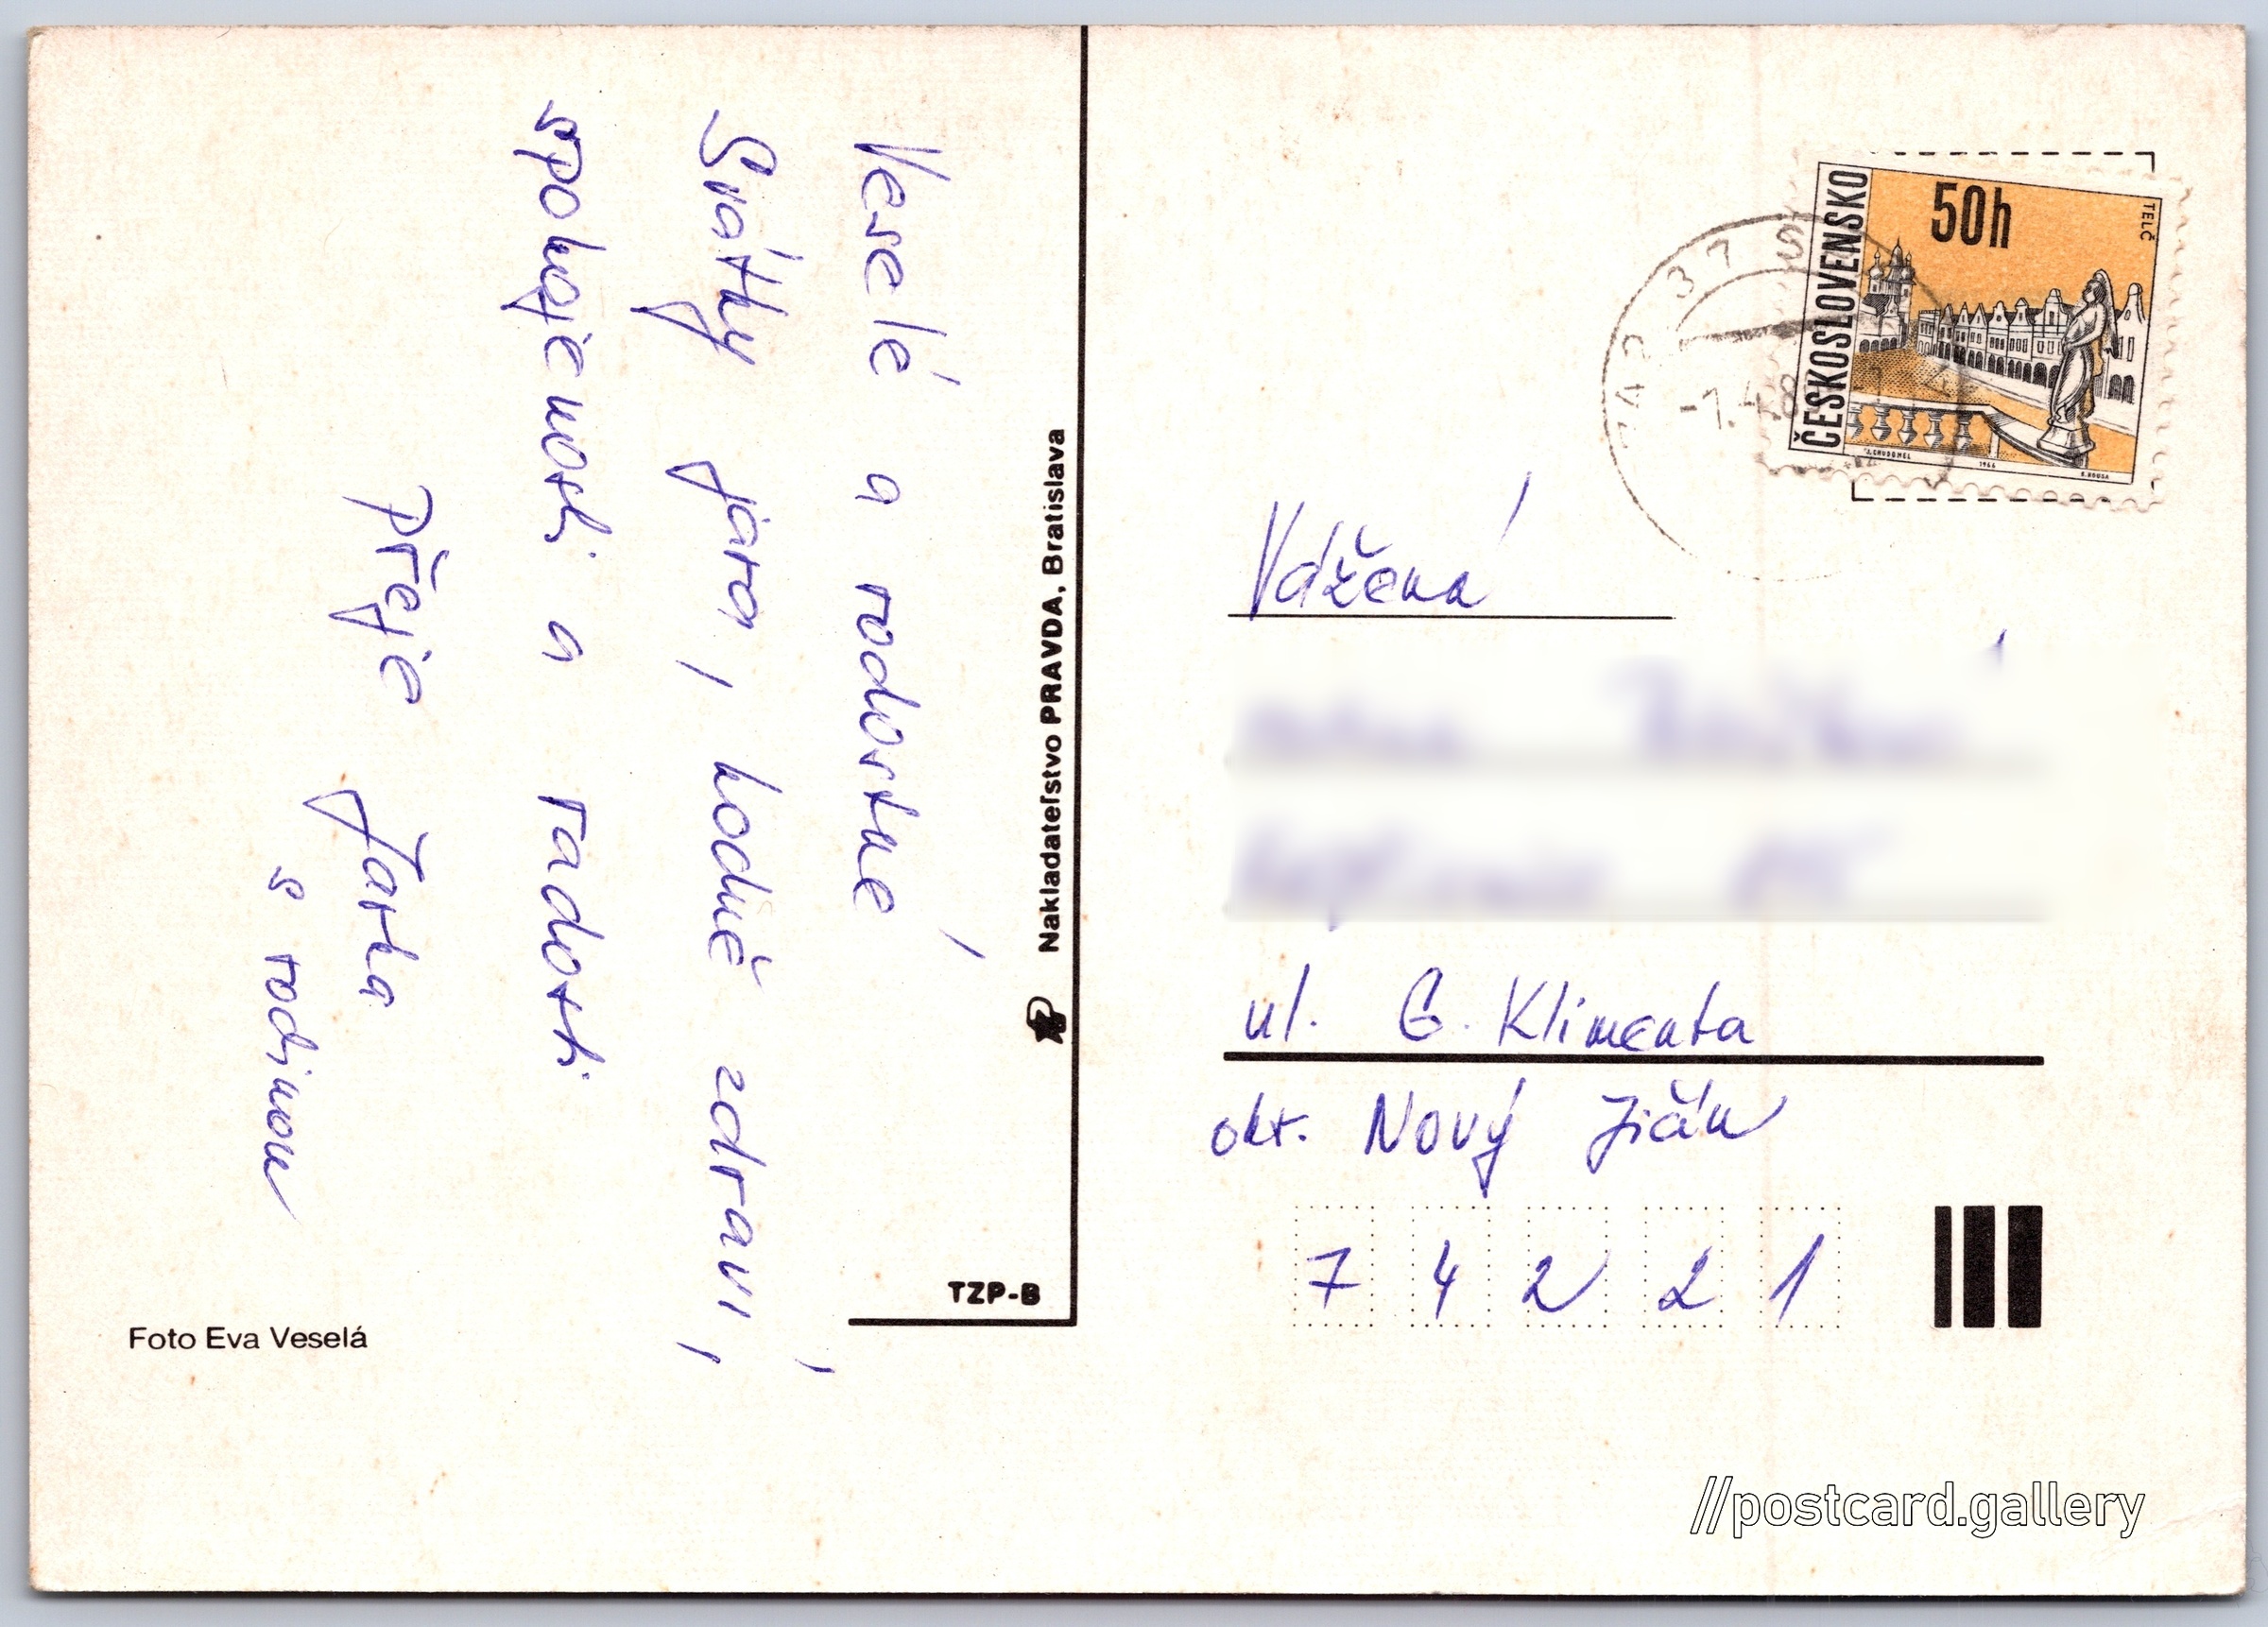 Veselé a radostné
Svátky jara, hodně zdraví,
spokojenosti a radosti
přeje Jarka
s rodinou
Foto Eva Veselá
TZP-B
Nakladateľstvo PRAVDA, Bratislava
ČESKOSLOVENSKO
50h
TELČ
J. CHUDOMEL
1966
742 37
-1.4.8
Vážená
ul. G. Klimenta
okr. Nový Jičín
7 4 2 2 1
//postcard.gallery